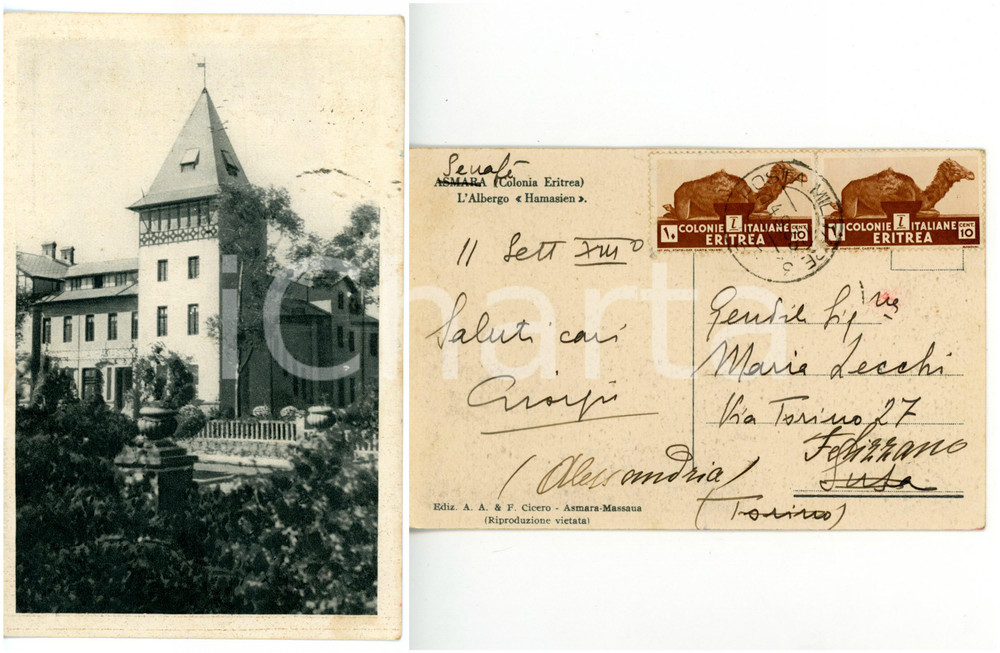 Senafè
ASMARA (Colonia Eritrea)
L'Albergo « Hamasien ».
11 Sett XIII°
Saluti cari
Giorgio
Gentil Sig.na
Maria Lecchi
Via Torino 27
Felizzano
Susa
(Alessandria)
(Torino)
Ediz. A. A. & F. Cicero - Asmara-Massaua
(Riproduzione vietata)
COLONIE ITALIANE
ERITREA
CENT. 10
COLONIE ITALIANE
ERITREA
CENT. 10
POSTA MILITARE
iCharta